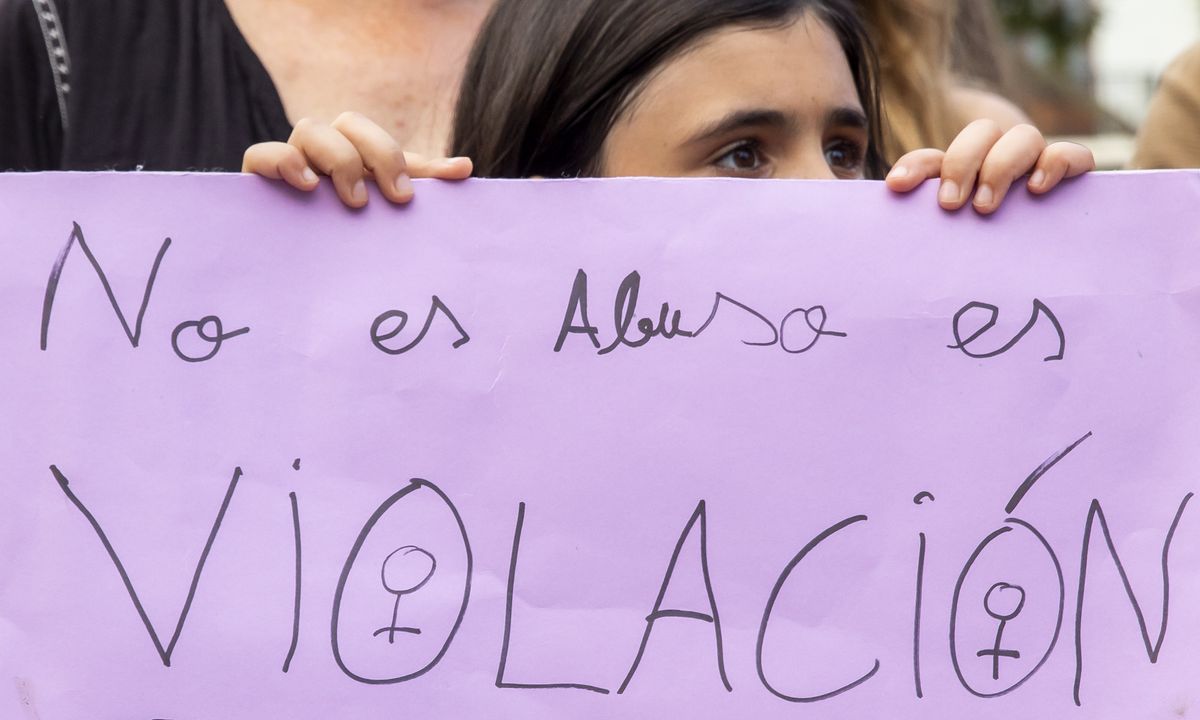 No es Abuso es
ViOLACiÓN